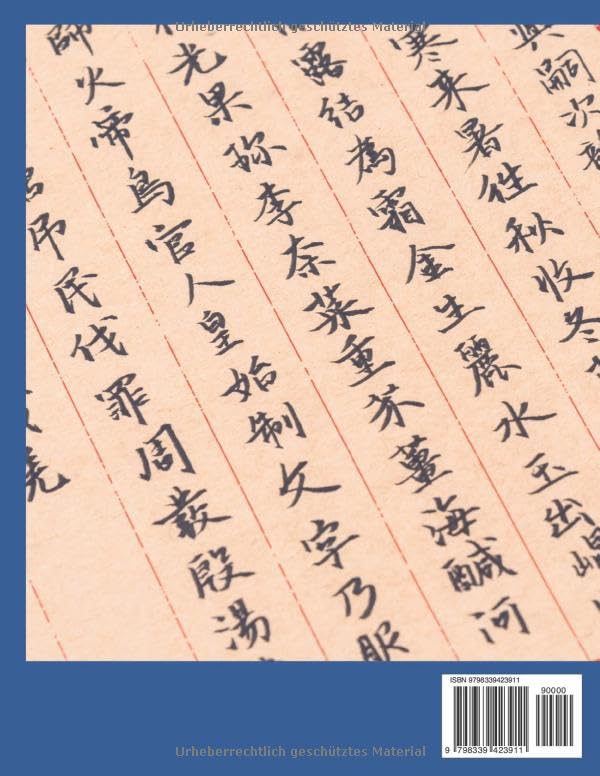 Urheberrechtlich geschütztes Material
與嗣次
寒来暑往秋收冬
露結為霜金生麗水玉出崐
光果珎李奈菜重芥薑海鹹河
師火帝鳥官人皇始制文字乃服
弔民伐罪周發殷湯
羌
ISBN 9798339423911
90000
9 798339 423911
Urheberrechtlich geschütztes Material